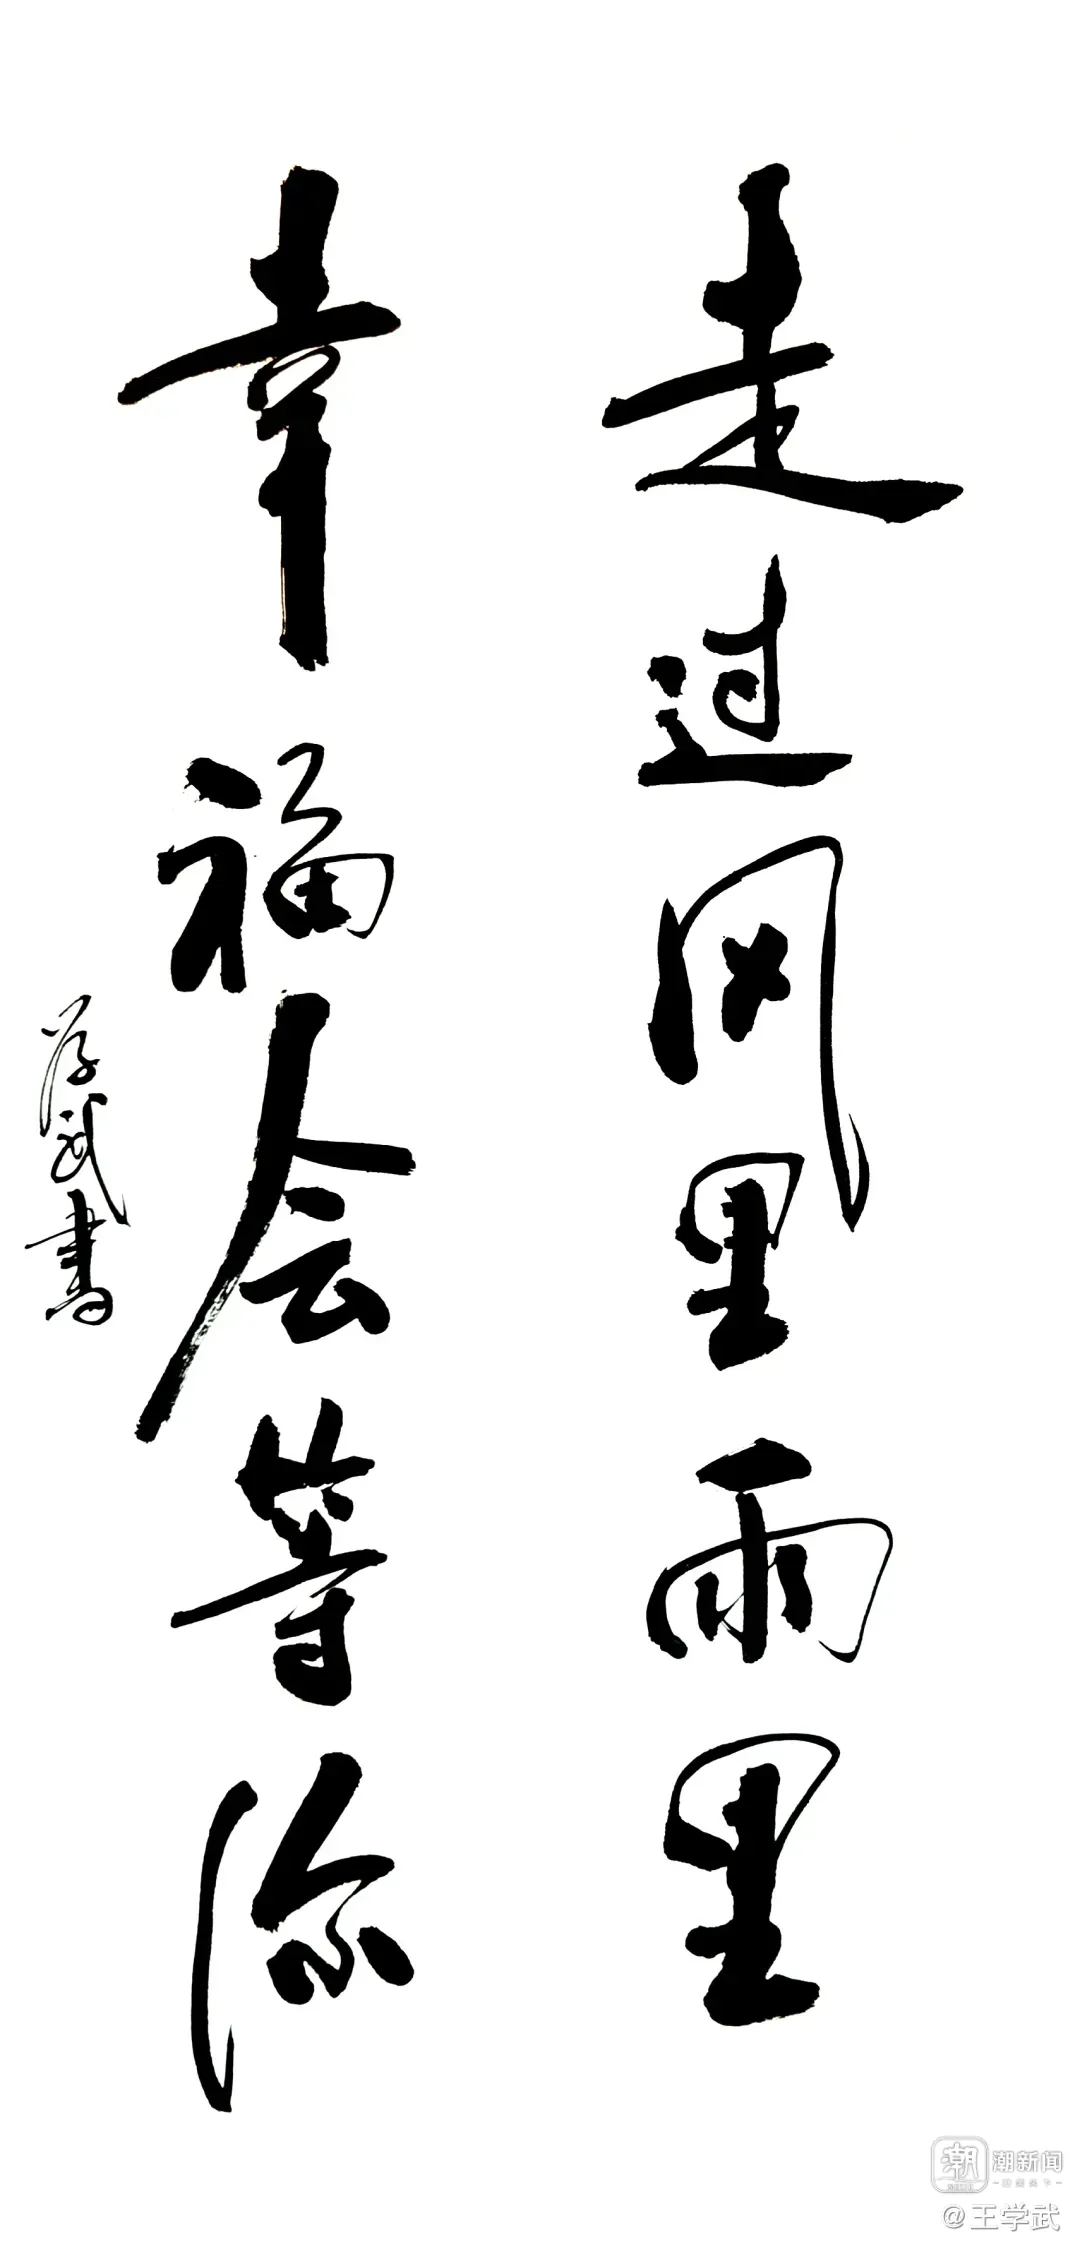 走过风里雨里
幸福会等你
学武书
潮新闻
@王学武